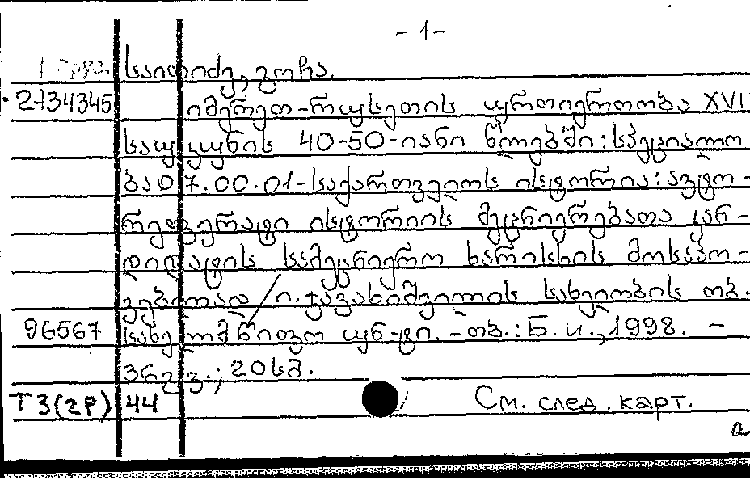 - 1 -
საითიძე, გოჩა.
2134345 იმერეთ-რუსეთის ურთიერთობა XVII
საუკუნის 40-50-იანი წლებში: სპეციალო
ბა 07.00.01-საქართველოს ისტორია: ავტო-
რეფერატი ისტორიის მეცნიერებათა კან-
დიდატის სამეცნიერო ხარისხის მოსაპო-
ვებლად / ი. ჯავახიშვილის სახელობის თბ.
96567 სახელმწიფო უნ-ტი. - თბ.: Б. и., 1998. -
20სმ.
Т3(2Р) 44 См. след. карт.